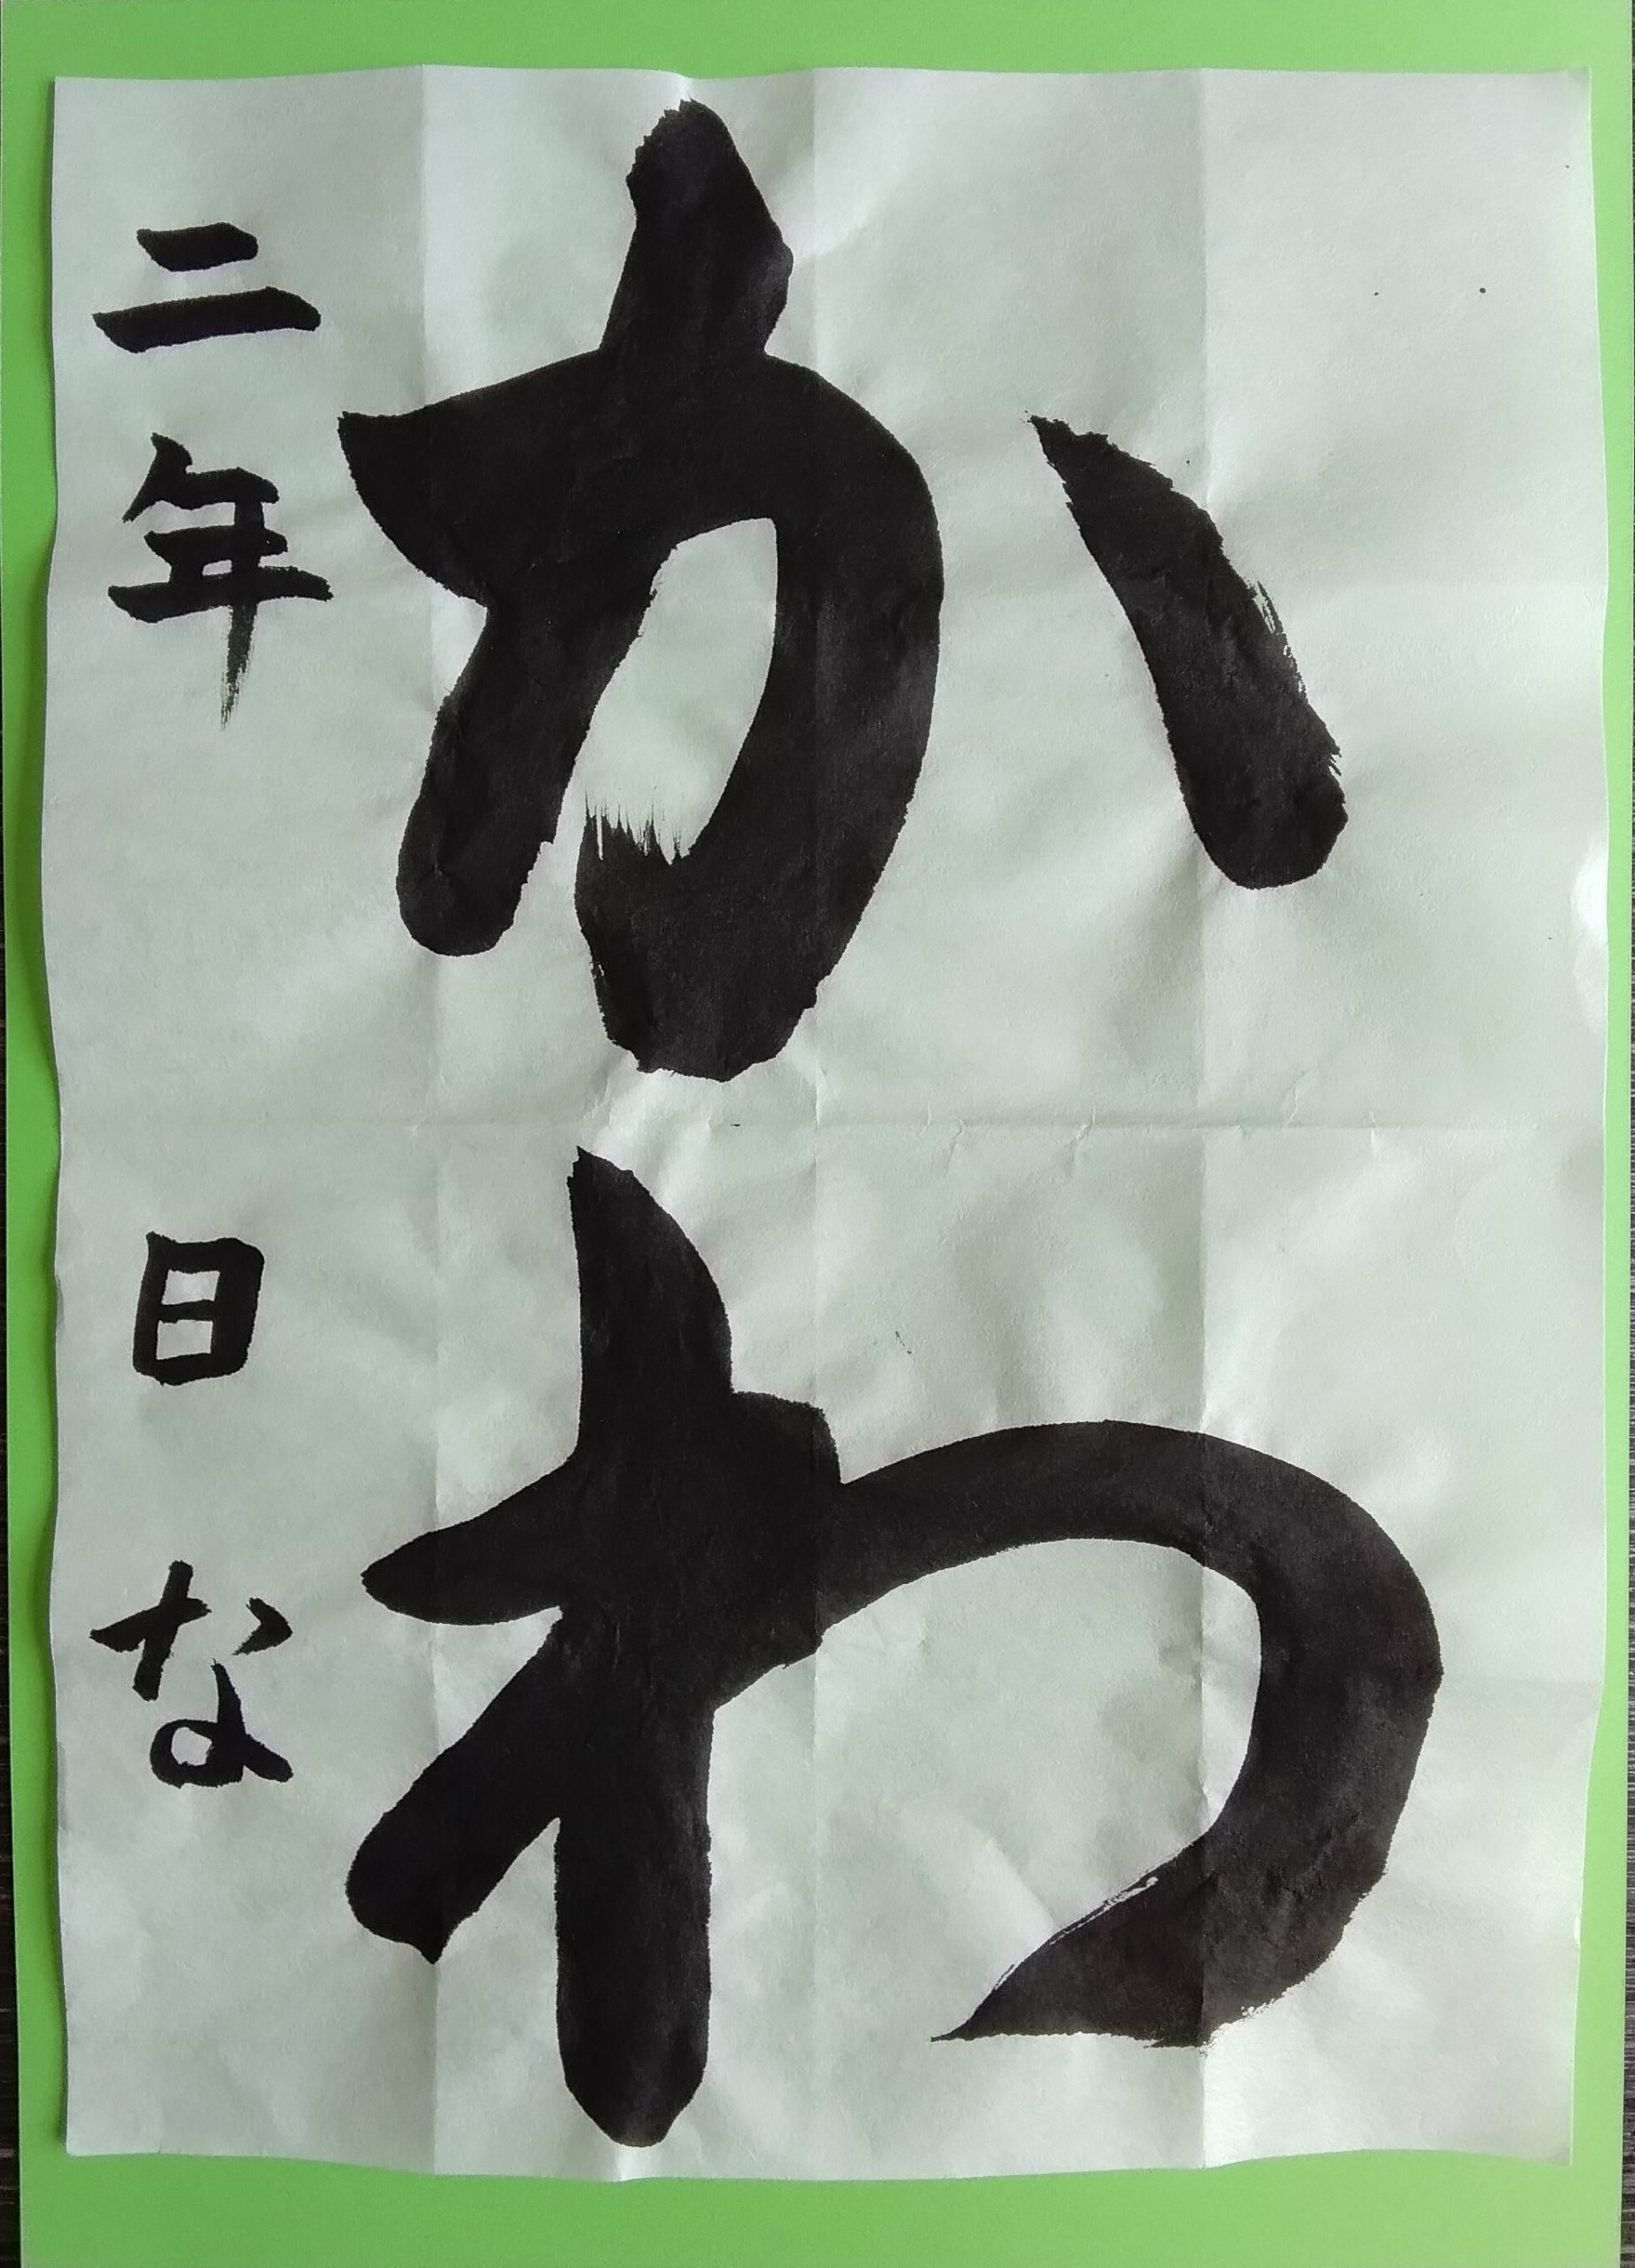 かわ
二年 日な